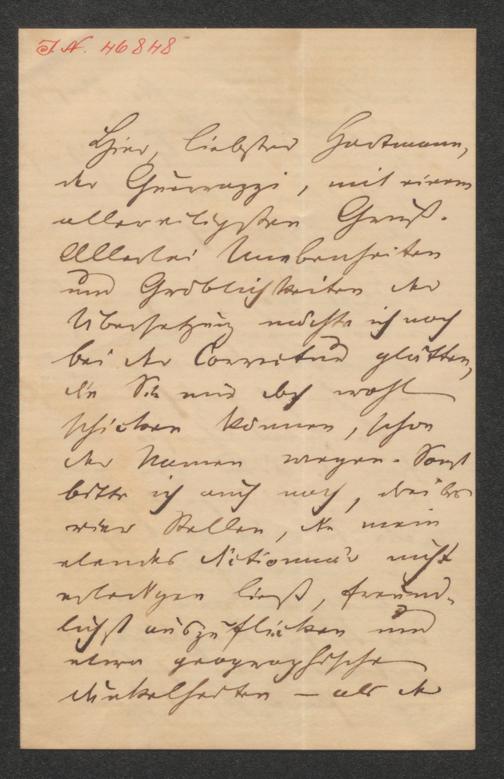 I. N. 46848
Hier, liebster Hartmann,
der Guerrazzi, mit einem
allereiligsten Gruß.
Allerlei Unebenheiten
und Gröblichkeiten der
Übersetzung möchte ich noch
bei der Correctur glätten,
die Sie mir doch wohl
schicken können, schon
der Namen wegen. Sonst
bitte ich auch noch, drei bis
vier Stellen, die mein
elendes Dictionnär nicht
erledigen ließ, freund-
lichst auszuflicken und
etwa geographische
Dunkelheiten – als die